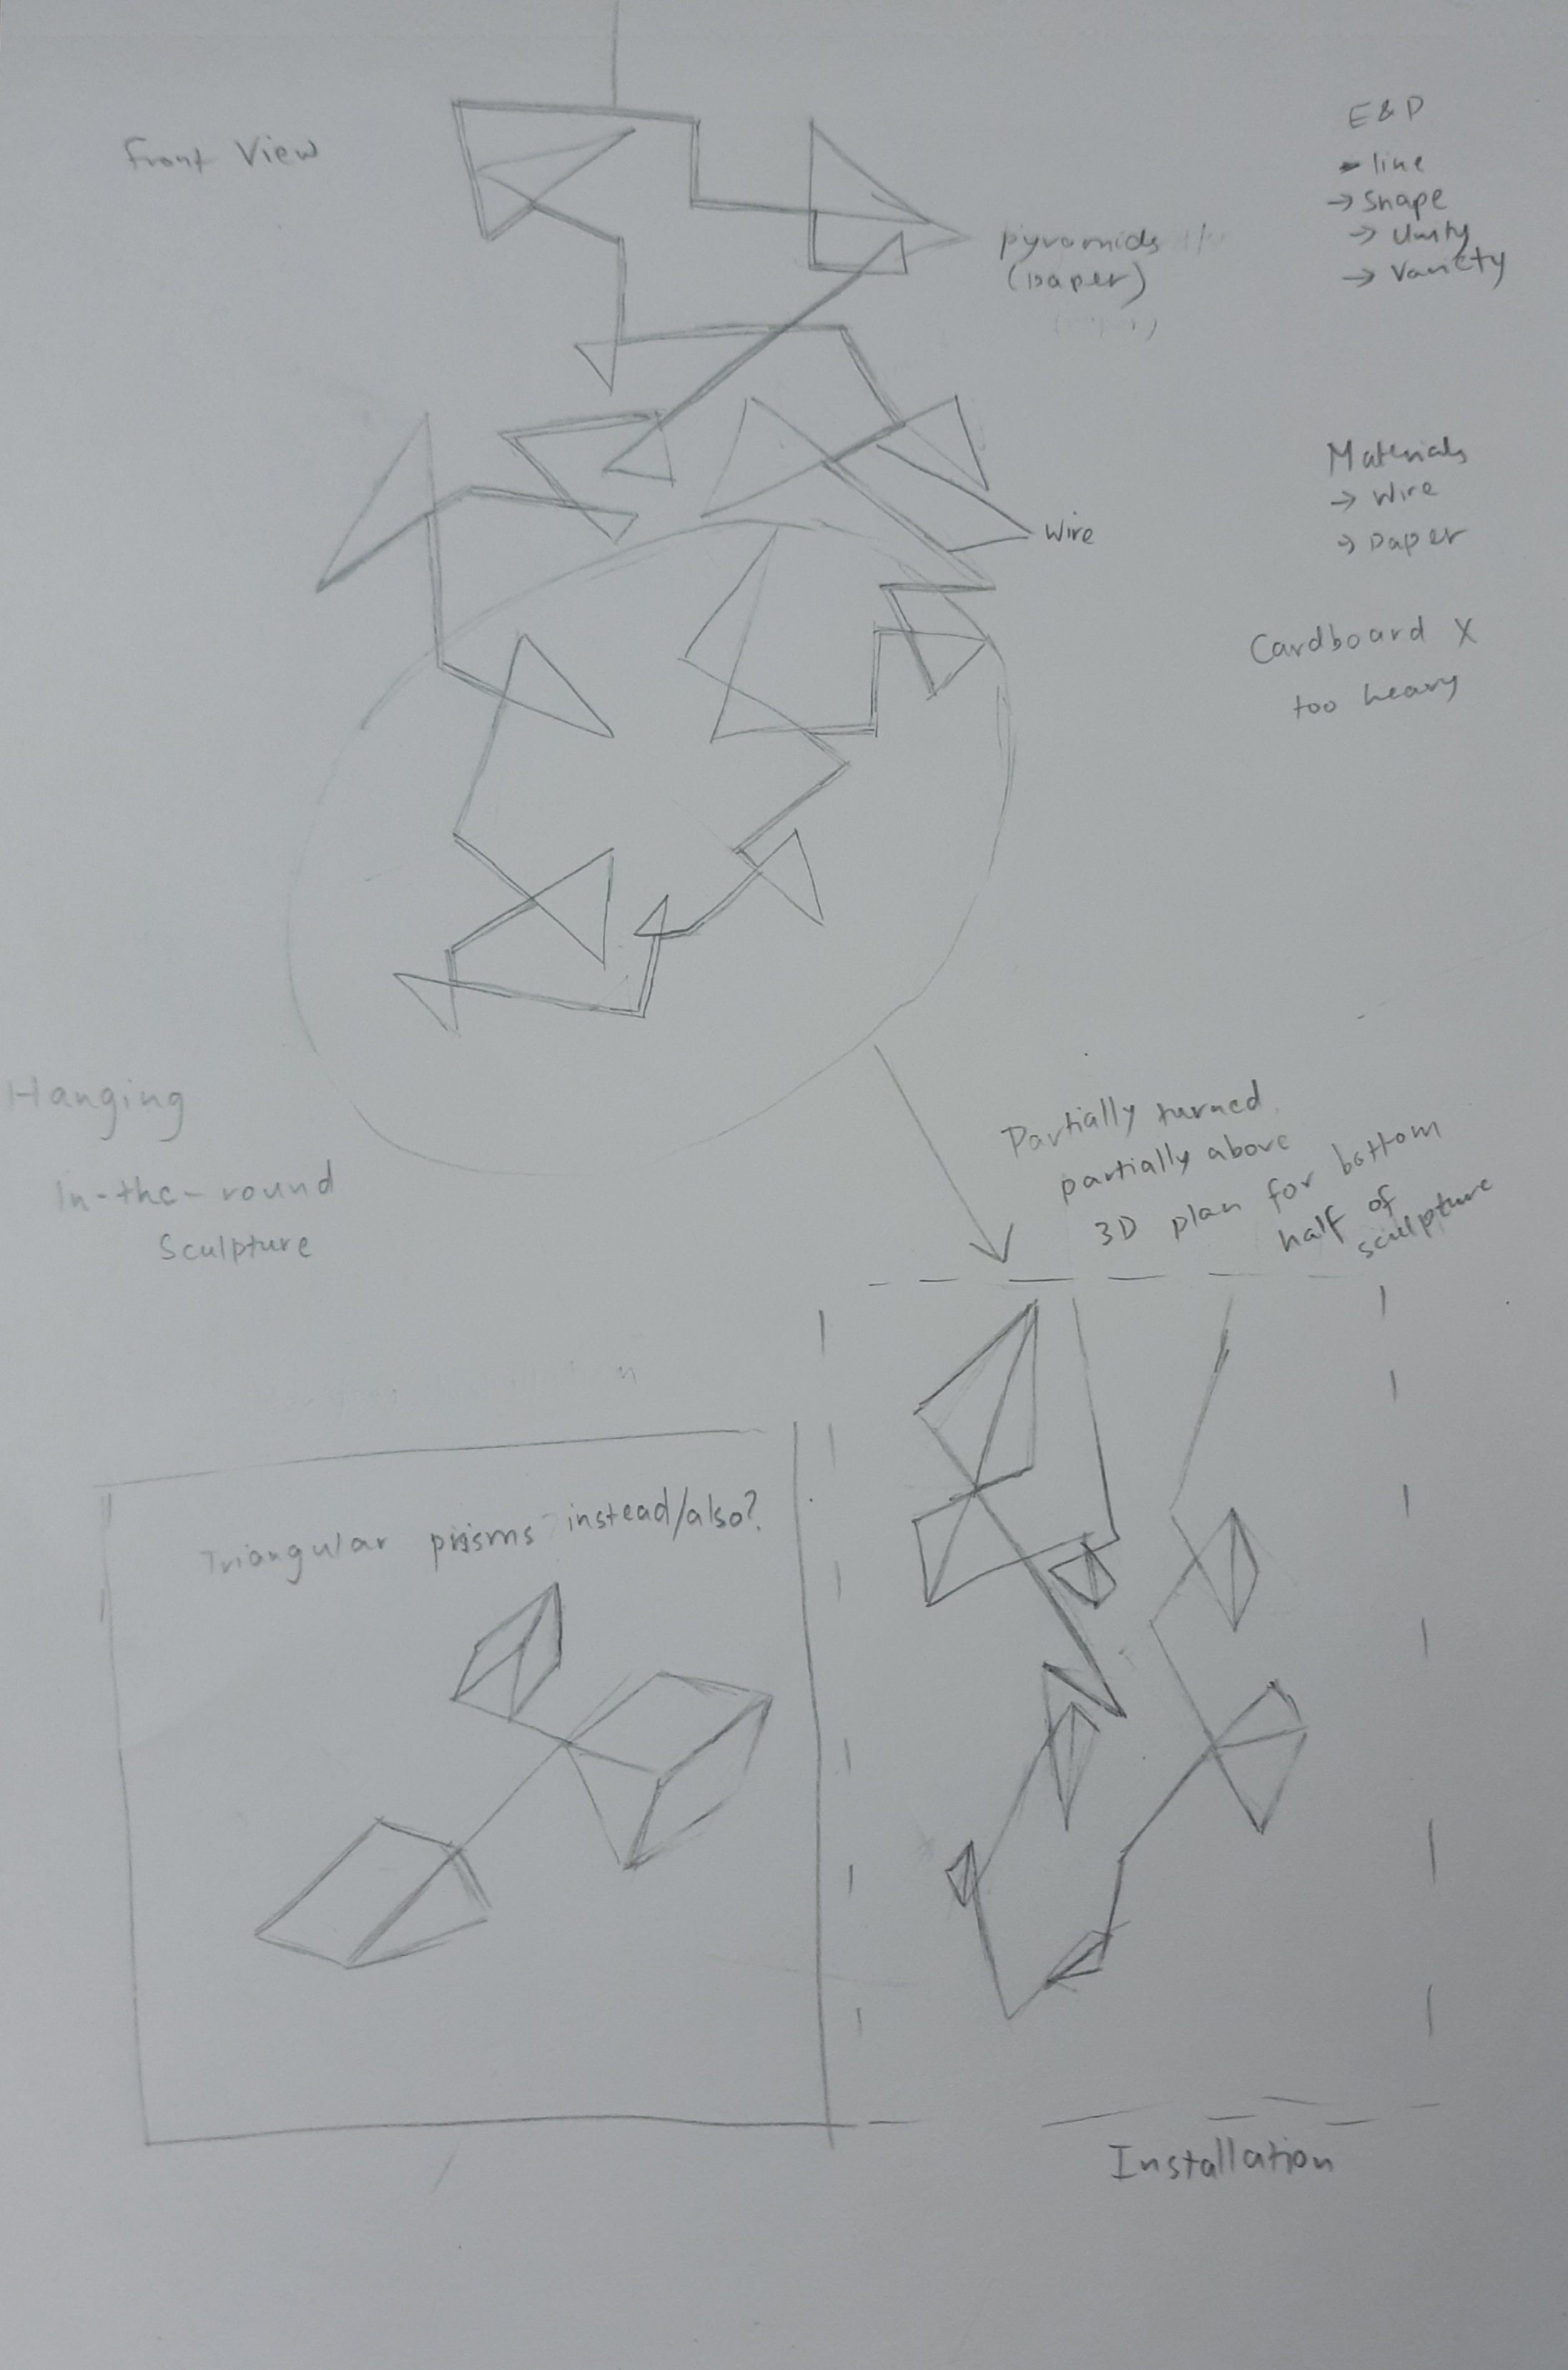 Front View
E & P
- line
→ Shape
→ Unity
→ Variety
pyramids
(paper)
Materials
→ Wire
→ Paper
Wire
Cardboard X
too heavy
Hanging
In-the-round
Sculpture
Partially turned
partially above
3D plan for bottom
half of
sculpture
Triangular prisms instead/also?
Installation